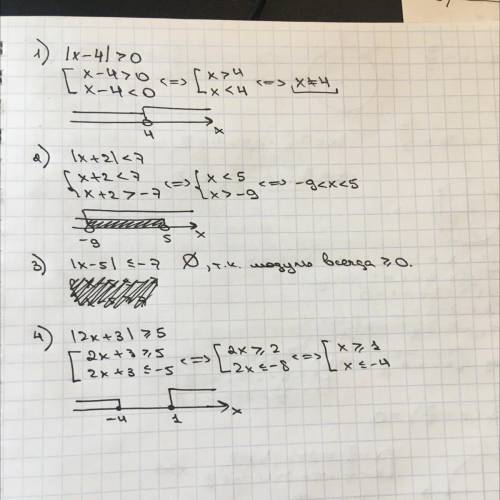 1) |x-4| > 0
[ x-4>0 <=> [ x>4 <=> x≠4
x-4<0 x<4
4 x
2) |x+2| < 7
{ x+2<7 <=> { x<5 <=> -9<x<5
x+2>-7 x>-9
-9 5 x
3) |x-5| ≤ -7 Ø, т.к. модуль всегда ≥ 0.
4) |2x+3| ≥ 5
[ 2x+3 ≥ 5 <=> [ 2x ≥ 2 <=> [ x ≥ 1
2x+3 ≤ -5 2x ≤ -8 x ≤ -4
-4 1 x